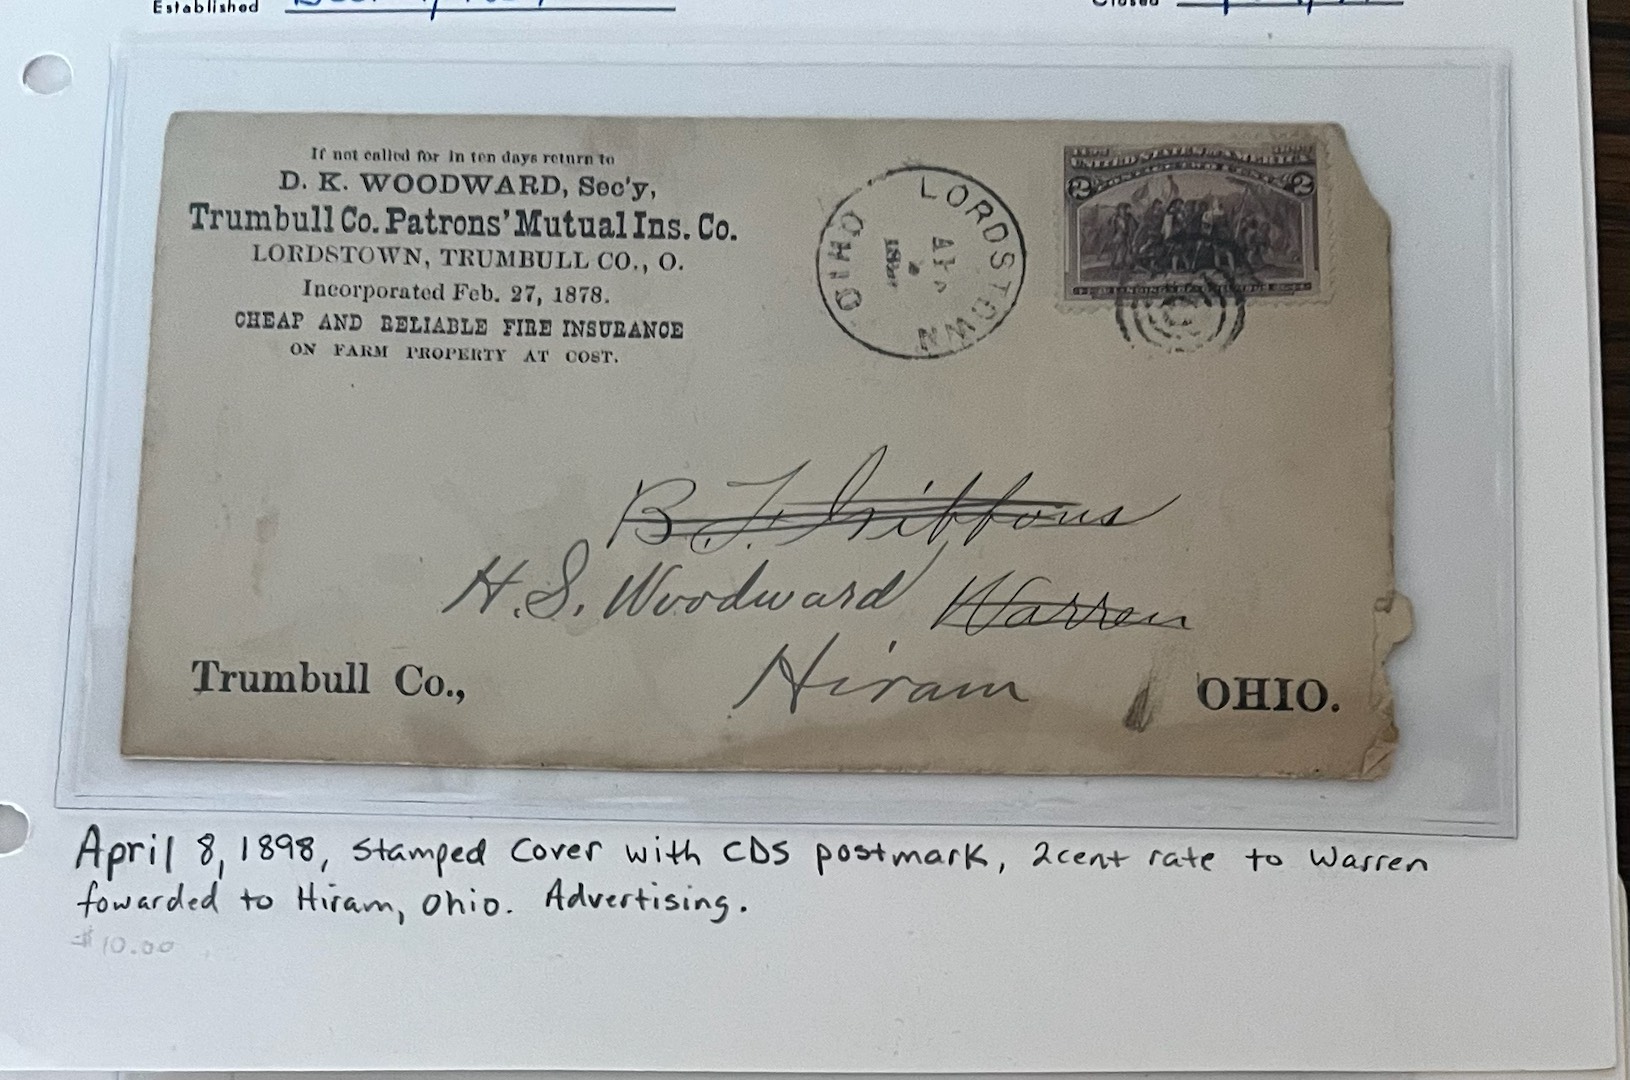 Established
Closed
If not called for in ten days return to
D. K. WOODWARD, Sec'y,
Trumbull Co. Patrons' Mutual Ins. Co.
LORDSTOWN, TRUMBULL CO., O.
Incorporated Feb. 27, 1878.
CHEAP AND RELIABLE FIRE INSURANCE
ON FARM PROPERTY AT COST.
LORDSTOWN
OHIO
UNITED STATES OF AMERICA
2 2
B. F. Gibbons
H. S. Woodward Warren
Hiram
Trumbull Co., OHIO.
April 8, 1898, Stamped Cover with CDS postmark, 2cent rate to Warren
fowarded to Hiram, Ohio. Advertising.
$10.00